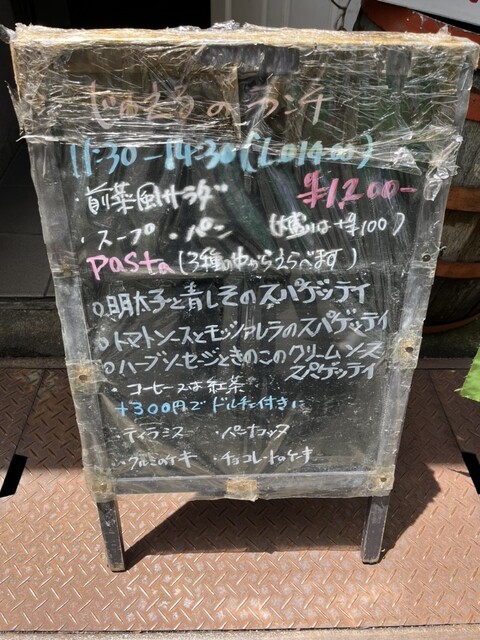 のランチ
11:30-14:30(L.O14:00)
・前菜風サラダ ¥1,200-
・スープ・パン (大盛りは+¥100)
Pasta(3種の中からえらべます)
○明太子と青しそのスパゲッティ
○トマトソースとモッツァレラのスパゲッティ
○ハーブソーセージときのこのクリームソース
スパゲッティ
・コーヒー又は紅茶
+300円でドルチェ付きに
・ティラミス ・パンナコッタ
・クルミのケーキ ・チョコレートのケーキ